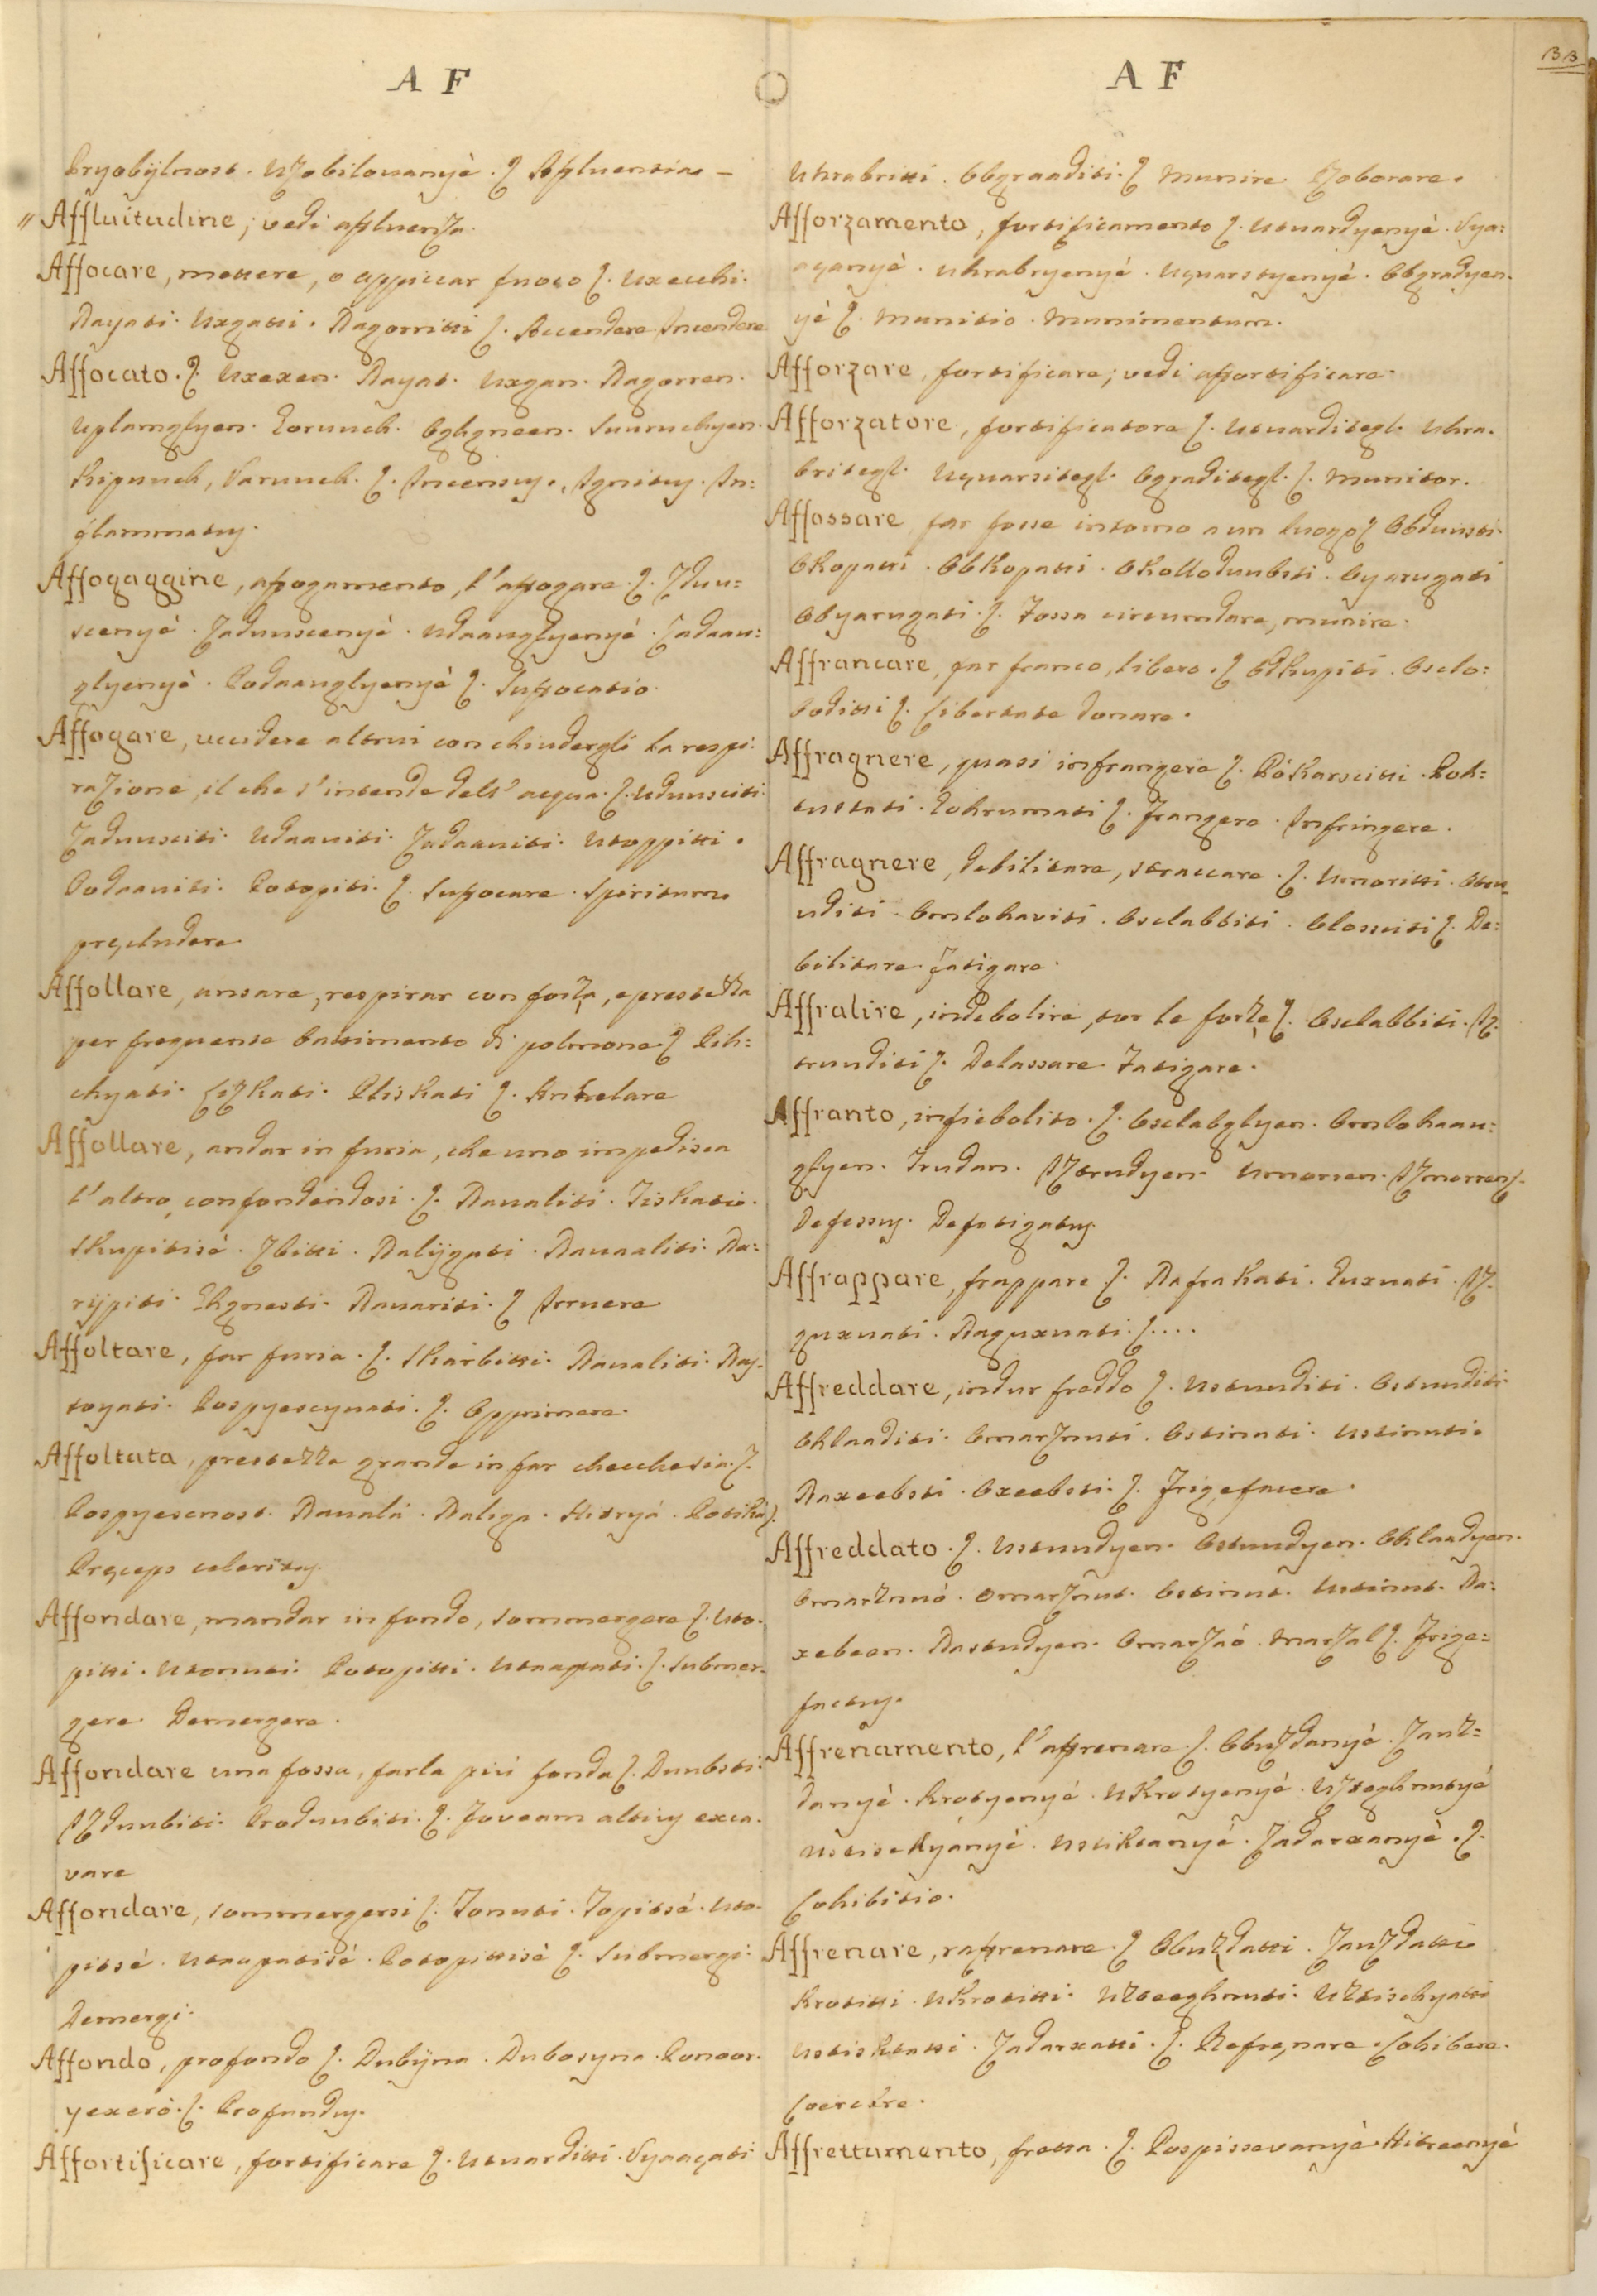 A F
Pryobÿlnost. Uzobilouanyè. ʃ. Affluentia. –
" Affluitudine; vedi affluenza.
Affocare, mettere, o appiccar fuoco ʃ. Uxecchi.
Nayati. Uxgatti. Nagorritti ʃ. Accendere Incendere
Affocato. ʃ. Uxexen. Nayat. Uxgan. Nagorren.
Uplamglyen. Goruuch. Oghgneen. Suuruchyen.
Kipuuch, Varuuch. ʃ. Incensus. Ignitus. In:
flammatus.
Affogaggine, affogamento, l'affogare. ʃ. Zduu:
scenyè. Zaduuscenyè. Udaauglyenyè. Zadaau:
glyenyè. Podaauglyenyè ʃ. Suffocatio.
Affogare, uccidere altrui con chiudergli la respi:
razione, il che s'intende dell'acqua. ʃ. Uduusciti.
Zaduusciti. Udaauiti. Zadaauiti. Utoppitti.
Podaauiti. Potopiti. ʃ. Suffocare. Spiritum
pręcludere.
Affollare, ansare, respirar con forza, e prestezza
per frequente battimento di polmone ʃ. Pih:
chyati. Cizkati. Pliskati ʃ. Anhelare
Affollare, andar in furia, che uno impedisca
l'altro, confondendosi. ʃ. Naualiti. Tiskati.
Skupitisè. Zbitti. Nalÿgati. Nauaaliti. Na:
rÿpiti. Ghgnesti. Nauariti. ʃ. Irruere.
Affoltare, far furia. ʃ. Skarbitti. Naualiti. Nas.
toyati. Pospyescyuati. ʃ. Opprimere.
Affoltata, prestezza grande in far checchesia. ʃ.
Pospyescnost. Naualá. Naliga. Hitryá. Potiská ʃ.
Pręceps celeritas.
Affondare, mandar in fondo, sommergere ʃ. Uto.
pitti. Utonuti. Potopitti. Utaapati. ʃ. Submer.
gere. Demergere.
Affondare una fossa, farla più fonda ʃ. Duubsti.
Izduubiti. Produubiti. ʃ. Foveam altius exca.
vare
Affondare, sommergersi ʃ. Tonuti. Topitsè. Uto.
pitsè. Utaapatisè. Potopittisè ʃ. Submergi.
Demergi.
Affondo, profondo ʃ. Dubÿna. Dubosyna. Ponoor.
yexerò. ʃ. Profundus.
Affortificare, fortificare ʃ. Utuarditti. Syaaçati
A F
Uhrabritti. Obgraaditi. ʃ. Munire. Roborare.
Afforzamento, fortificamento ʃ. Utuardyenyè. Sya:
açanyè. Uhrabryenyè. Uquarstyenyè. Obgradyen.
yè ʃ. Munitio. Munimentum.
Afforzare, fortificare; vedi affortificare.
Afforzatore, fortificatore ʃ. Utuarditegl. Uhra.
britegl. Uquarsitegl. Ograditegl. ʃ. Munitor.
Affossare far fosse intorno a un luogo ʃ. Obduusti.
Okopatti. Obkopatti. Okolloduubsti. Oyarugati
Obyarugati. ʃ. Fossa circumdare, munire.
Affrancare, far franco, libero. ʃ. Odkupiti. Osclo:
boditti ʃ. Libertate donare.
Affragnere, quasi infrangere ʃ. Pokarscitti. Poh:
tustati. Pohrumati ʃ. Frangere. Infringere.
Affragnere, debilitare, straccare. ʃ. Umoritti. Otru_
uditi. Omlohaviti. Osclabbiti. Olossciti ʃ. De:
bilitare. Fatigare.
Affralire, indebolire, tor le forze ʃ. Osclabbiti. Iz.
truuditi ʃ. Delassare. Fatigare.
Affranto, infiebolito. ʃ. Osclabglyen. Omlohaau:
glyen. Trudan. Iztrudyen. Umorren. Izmorren ʃ.
Defessus. Defatigatus.
Affrappare, frappare ʃ. Nafrakati. Guxuati. Iz.
guxuati. Naguxuati. ʃ....
Affreddare, indur freddo ʃ. Ustuuditi. Ostuuditi
Ohlaaditi. Omarznuti. Ostinuti. Ustinuti.
Naxeebsti. Oxeebsti. ʃ. Frigefacere.
Affreddato. ʃ. Ustuudyen. Ostuudyen. Ohlaadyen.
Omarznuó. Omarznut. Ostinut. Ustinut. Na:
xebeen. Nastudyen. Omarzaó. Marzal ʃ. Frige:
factus.
Affrenamento, l'affrenare. ʃ. Obuzdanyè. Zauz=
danyè. Krotyenyè. Ukrotyenyè. Uzteghnutyè
Ustisckyányè. Ustiktanyè. Zadarxanyè. ʃ.
Cohibitio.
Affrenare, raffrenare. ʃ. Obuzdatti. Zauzdatti
Krotitti. Ukrotitti. Uzteeghnuti. Uztischyatti
Ustisktatti. Zadarxatti. ʃ. Refrenare. Cohibere.
Coercere.
Affrettamento, fretta. ʃ. Pospissevanyè. Hitreenyè